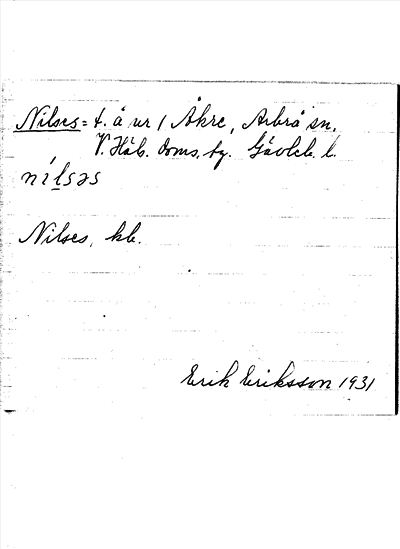 Nilses = t. å nr 1 Åkre, Arbrå sn,
V. Häls. doms. by. Gävleb. l.
nílsəs
Nilses, kb.
Erik Eriksson 1931